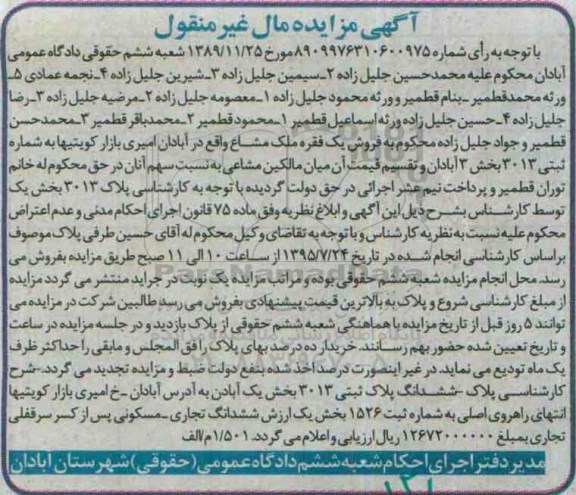 آگهی مزایده مال غیر منقول
با توجه به رأی شماره ۸۹۰۹۹۷۶۳۱۰۶۰۰۹۷۵ مورخ ۱۳۸۹/۱۱/۲۵ شعبه ششم حقوقی دادگاه عمومی
آبادان محکوم علیه محمدحسین جلیل زاده ۲ـ سیمین جلیل زاده ۳ـ شیرین جلیل زاده ۴ـ نجمه عمادی ۵ـ
ورثه محمدقطمیر ـ بنام قطمیر و رثه محمود جلیل زاده ۱ـ معصومه جلیل زاده ۲ـ مرضیه جلیل زاده ۳ـ رضا
جلیل زاده ۴ـ حسین جلیل زاده ورثه اسماعیل قطمیر ۱ـ محمود قطمیر ۲ـ محمدباقر قطمیر ۳ـ محمدحسن
قطمیر و جواد جلیل زاده محکوم به فروش یک فقره ملک مشاع واقع در آبادان امیری بازار کویتیها به شماره
ثبتی ۳۰۱۳ بخش ۳ آبادان و تقسیم قیمت آن میان مالکین مشاعی به نسبت سهم آنان در حق محکوم له خانم
توران قطمیر و پرداخت نیم عشر اجرائی در حق دولت گردیده با توجه به کارشناسی پلاک ۳۰۱۳ بخش یک
توسط کارشناس بشرح ذیل این آگهی و ابلاغ نظریه وفق ماده ۷۵ قانون اجرای احکام مدنی و عدم اعتراض
محکوم علیه نسبت به نظریه کارشناس و با توجه به تقاضای وکیل محکوم له آقای حسین طرفی پلاک موصوف
براساس کارشناسی انجام شده در تاریخ ۱۳۹۵/۷/۲۴ از ساعت ۱۰ الی ۱۱ صبح طریق مزایده بفروش می
رسد. محل انجام مزایده شعبه ششم حقوقی بوده و مراتب مزایده یک نوبت در جراید منتشر می گردد مزایده
از مبلغ کارشناسی شروع و پلاک به بالاترین قیمت پیشنهادی بفروش می رسد طالبین شرکت در مزایده می
توانند ۵ روز قبل از تاریخ مزایده با هماهنگی شعبه ششم حقوقی از پلاک بازدید و در جلسه مزایده در ساعت
و تاریخ تعیین شده حضور بهم رسانند. خریدار ده درصد بهای پلاک را فی المجلس و مابقی را حداکثر ظرف
یک ماه تودیع می نماید. در غیر اینصورت درصد اخذ شده بنفع دولت ضبط و مزایده تجدید می گردد. ـ شرح
کارشناسی پلاک ـ ششدانگ پلاک ثبتی ۳۰۱۳ بخش یک آبادن به آدرس آبادان ـ خ امیری بازار کویتیها
انتهای راهروی اصلی به شماره ثبت ۱۵۲۶ بخش یک ارزش ششدانگ تجاری ـ مسکونی پس از کسر سرقفلی
تجاری بمبلغ ۱۲۶۷۲۰۰۰۰۰۰ ریال ارزیابی و اعلام می گردد. ۱/۵۰۱م/الف
مدیر دفتر اجرای احکام شعبه ششم دادگاه عمومی (حقوقی) شهرستان آبادان
ParsNamadData